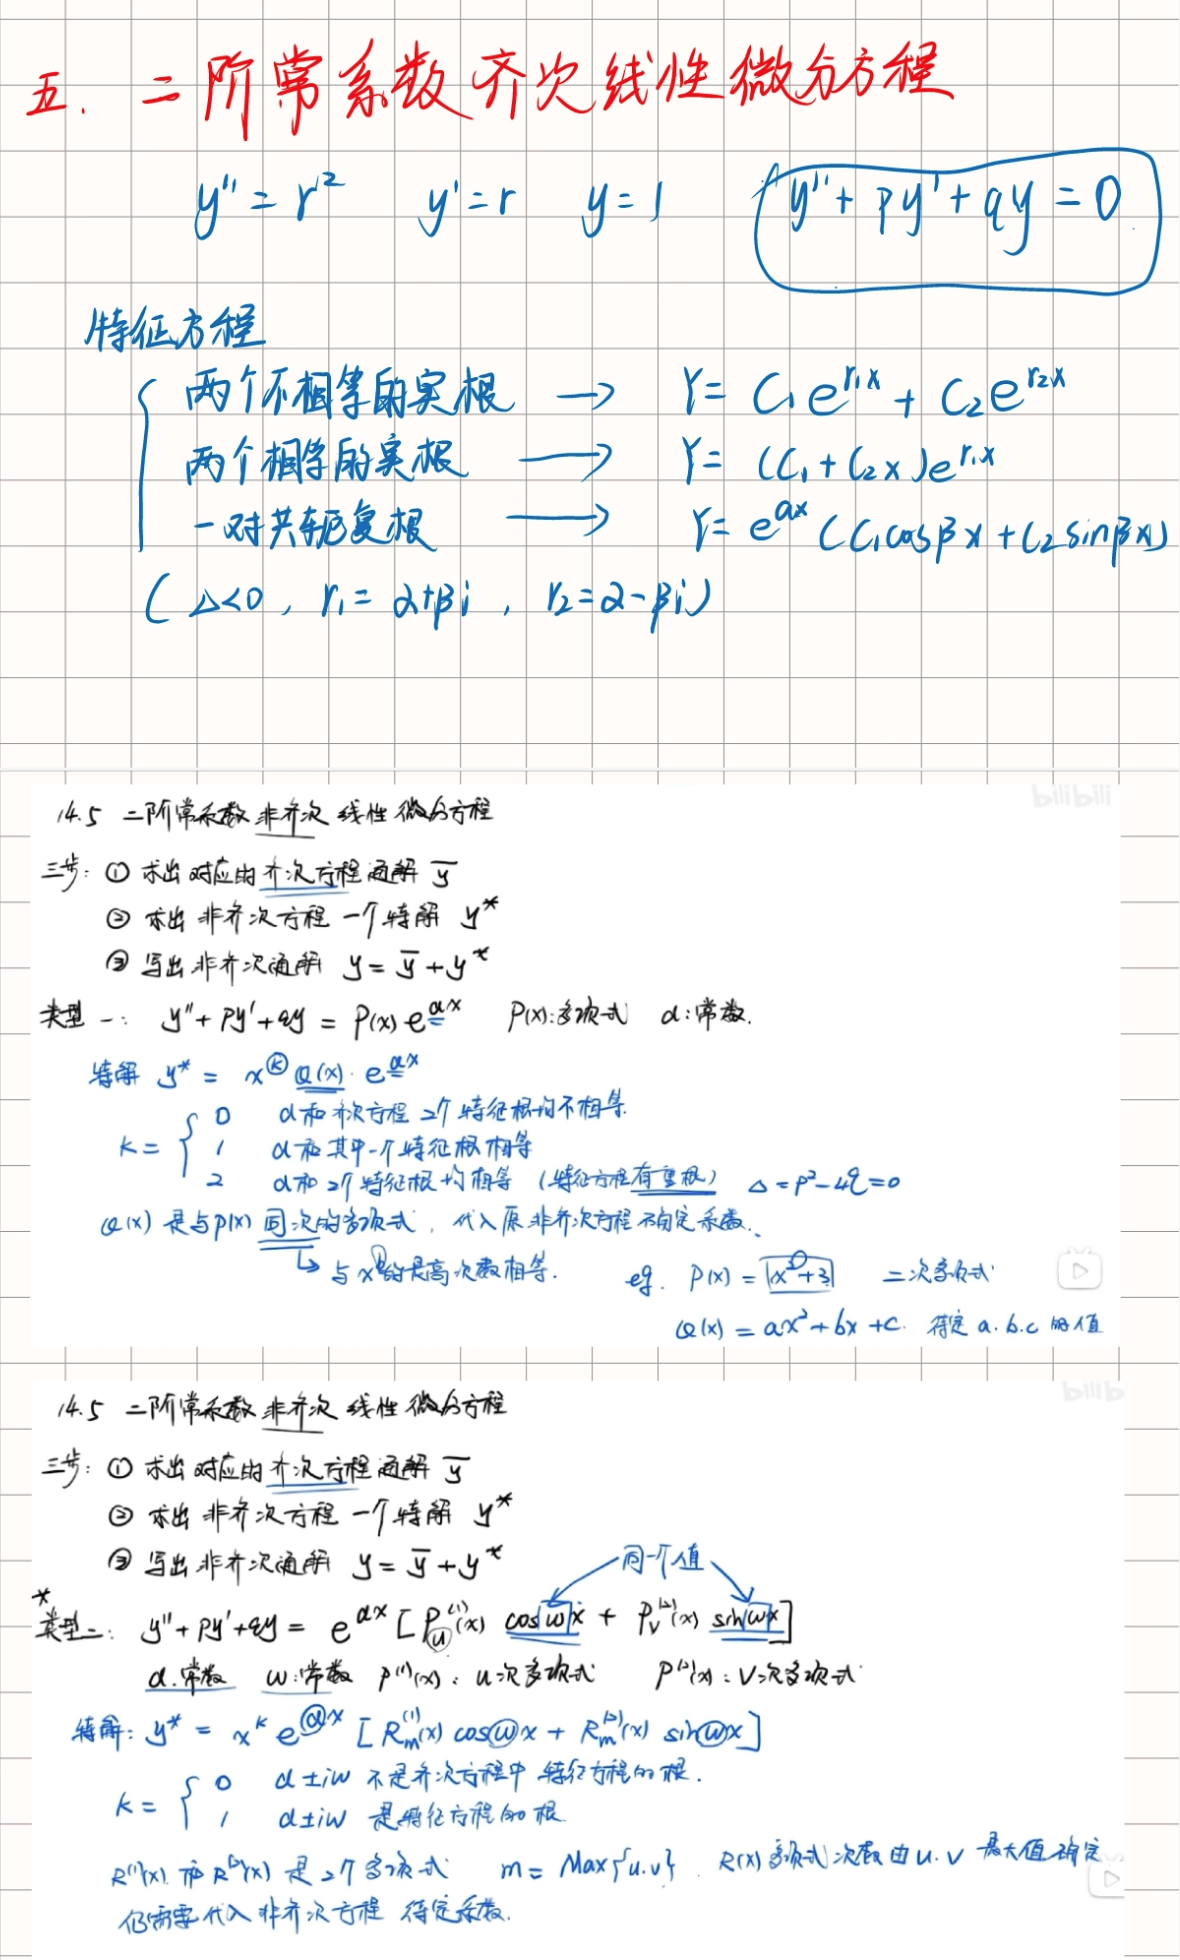 五. 二阶常系数齐次线性微分方程
y'' = r² y' = r y = 1 y'' + py' + qy = 0
特征方程
两个不相等的实根 → Y = C₁e^{r₁x} + C₂e^{r₂x}
两个相等的实根 → Y = (C₁ + C₂x)e^{r₁x}
一对共轭复根 → Y = e^{αx}(C₁cosβx + C₂sinβx)
(Δ<0, r₁ = α+βi, r₂ = α-βi)
bilibili
14.5 二阶常系数非齐次线性微分方程
三步: ① 求出对应的齐次方程通解 ȳ
② 求出非齐次方程一个特解 y*
③ 写出非齐次通解 y = ȳ + y*
类型一: y'' + py' + qy = P(x)e^{αx} P(x): 多项式 α: 常数.
特解 y* = x^k Q(x)·e^{αx}
k = { 0 α和齐次方程2个特征根均不相等.
1 α和其中一个特征根相等
2 α和2个特征根均相等 (特征方程有重根) Δ = p² - 4q = 0
Q(x) 是与P(x)同次的多项式, 代入原非齐次方程确定系数.
↳ 与x的最高次数相等. eg. P(x) = x² + 3 二次多项式
Q(x) = ax² + bx + c. 待定 a.b.c 的值
14.5 二阶常系数非齐次线性微分方程
三步: ① 求出对应的齐次方程通解 ȳ
② 求出非齐次方程一个特解 y*
③ 写出非齐次通解 y = ȳ + y*
同一个值
* 类型二: y'' + py' + qy = e^{αx}[P_u^{(1)}(x) cosωx + P_v^{(2)}(x) sinωx]
α.常数 ω:常数 P^{(1)}(x): u次多项式 P^{(2)}(x): v次多项式
特解: y* = x^k e^{αx}[R_m^{(1)}(x) cosωx + R_m^{(2)}(x) sinωx]
k = { 0 α±iω 不是齐次方程中特征方程的根.
1 α±iω 是特征方程的根.
R^{(1)}(x) 和 R^{(2)}(x) 是2个多项式 m = Max{u.v}. R(x)多项式次数由u.v最大值确定
仍需要代入非齐次方程 待定系数.